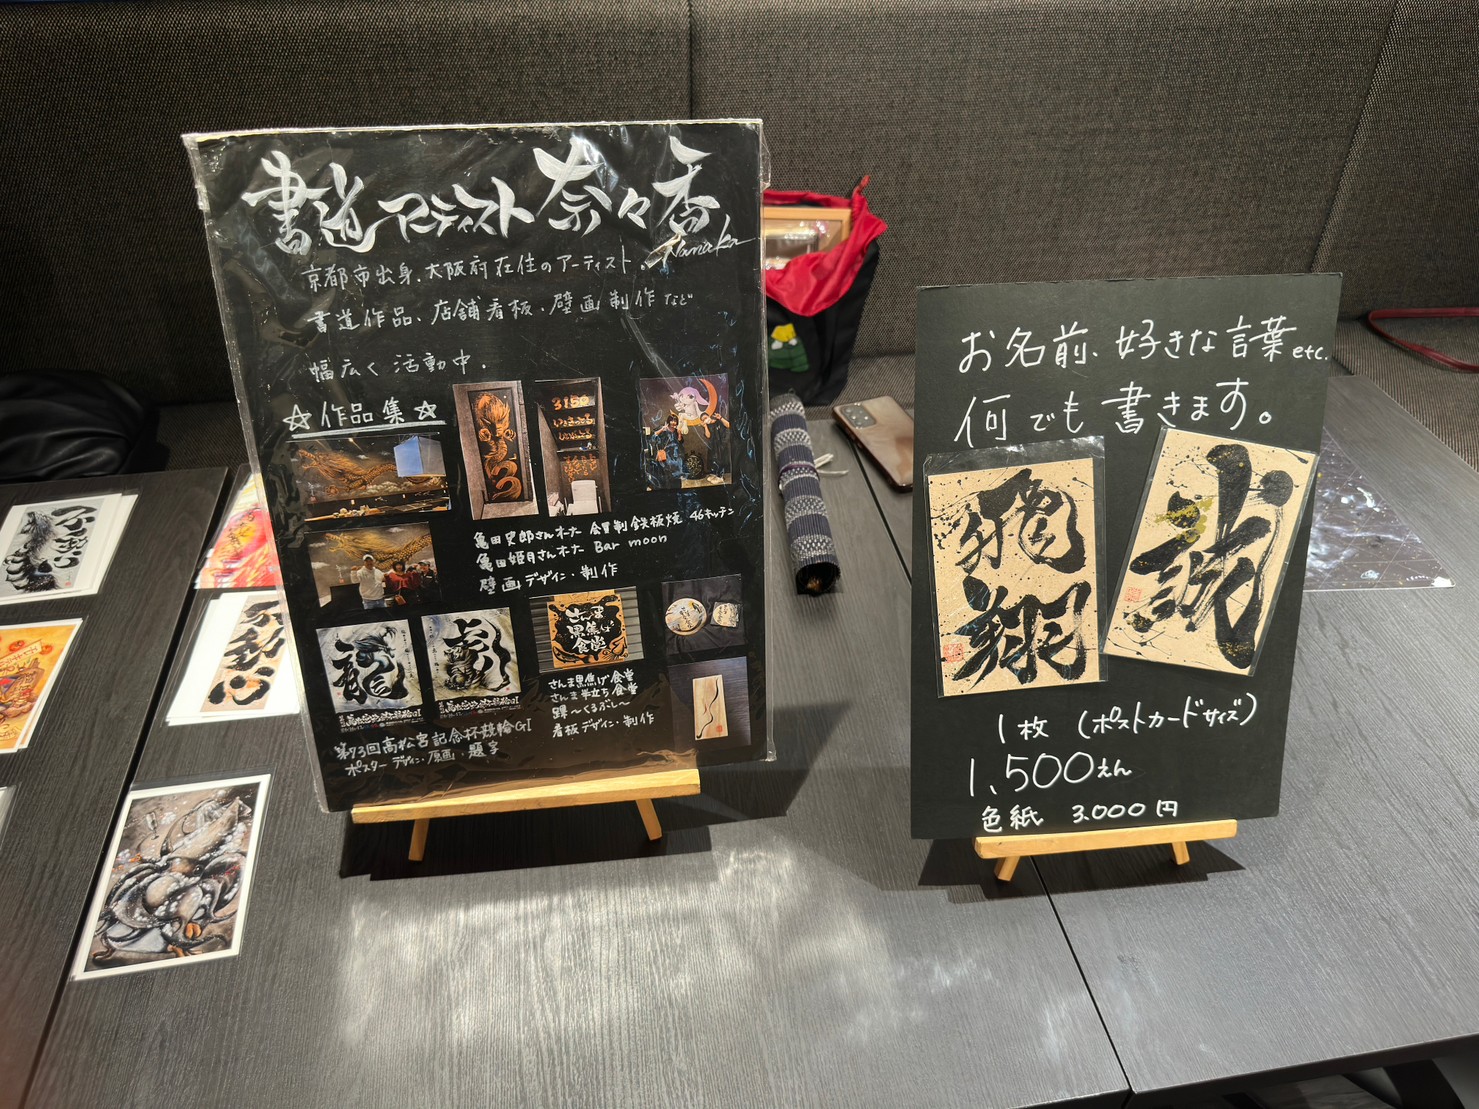 書道アーティスト奈々香
Nanaka
京都市出身.大阪府在住のアーティスト.
書道作品、店舗看板、壁画制作など
幅広く活動中.
☆作品集☆
3150
亀田史郎さんオーナー 会員制鉄板焼 46キッチン
亀田姫月さんオーナー Bar moon
壁画デザイン・制作
さんま
黒焦げ
食堂
龍
さんま黒焦げ食堂
さんま半立ち食堂
踝〜くるぶし〜
看板デザイン・制作
第73回高松宮記念杯競輪GI
ポスターデザイン・原画・題字
お名前、好きな言葉etc.
何でも書きます。
飛翔
誠
1枚 (ポストカードサイズ)
1,500えん
色紙 3.000円